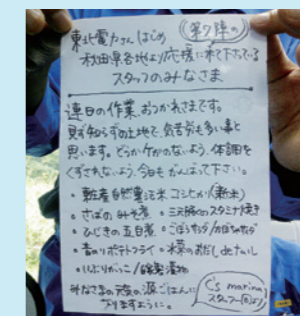 東北電力さんはじめ
第7陣の
秋田県各地より応援に来て下さっている
スタッフのみなさま
連日の作業、おつかれさまです。
見ず知らずの土地で、気苦労も多い事と
思います。どうかケガのないよう、体調を
くずされないよう、今日もがんばって下さい。
・ 自然農法米コシヒカリ(新米)
・さばのみそ煮 ・ スタミナ焼き
・ひじきの五目煮 ・ごぼうサラダ/かぼちゃサラダ
・青のりポテトフライ ・水菜のおだし
・いぶりがっこ/ 漬物
みなさまの 源ごはんに
なりますように。
C's marina
スタッフ一同より